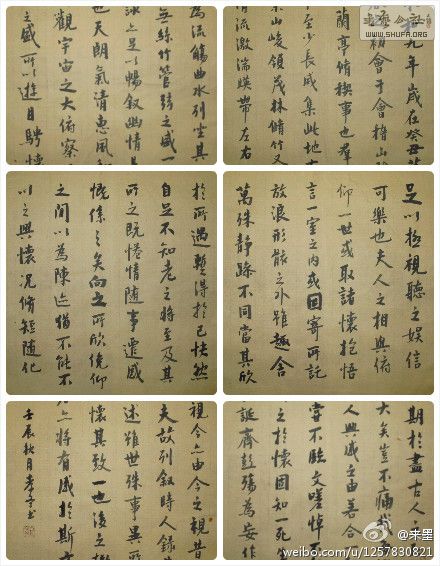 和九年歲在癸丑
初會于會稽山
蘭亭脩禊事也羣
至少長咸集此地
崇山峻領茂林脩竹又
清流激湍暎帶左右
為流觴曲水列坐其
無絲竹管弦之盛一
詠亦足以暢敘幽情
也天朗氣清惠風
觀宇宙之大俯察
之盛所以遊目騁懷
足以極視聽之娛信
可樂也夫人之相與俯
仰一世或取諸懷抱悟
言一室之內或因寄所託
放浪形骸之外雖趣舍
萬殊靜躁不同當其欣
於所遇暫得於己怏然
自足不知老之將至及其
所之既惓情隨事遷感
慨係之矣向之所欣俛仰
之間以為陳迹猶不能不
以之興懷況脩短隨化
期於盡古人
大矣豈不痛哉
人興感之由若合
嘗不臨文嗟悼不
之於懷固知一死生
誕齊彭殤為妄作
視今亦由今之視昔
夫故列敘時人錄其
述雖世殊事異所
懷其致一也後之
亦將有感於斯
壬辰秋月
WWW.SHUFA.ORG
@来墨
weibo.com/u/1257830821